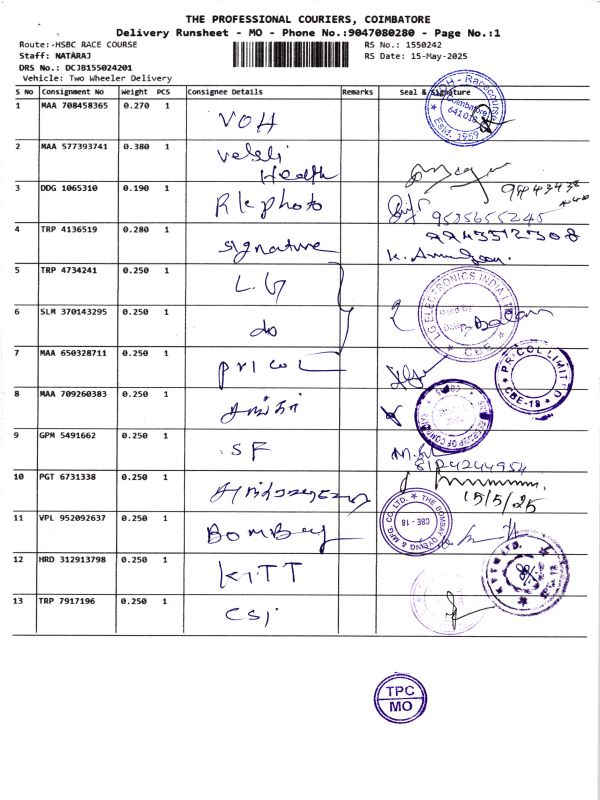 THE PROFESSIONAL COURIERS, COIMBATORE
Delivery Runsheet - MO - Phone No.:9047080280 - Page No.:1
Route:-HSBC RACE COURSE
RS No.: 1550242
Staff: NATARAJ
RS Date: 15-May-2025
DRS No.: DCJB155024201
Vehicle: Two Wheeler Delivery
S No Consignment No Weight PCS Consignee Details Remarks Seal & Signature
1 MAA 708458365 0.270 1 VOH
Racecourse Coimbatore 641018 Estd. 1959
2 MAA 577393741 0.380 1
Health
3 DDG 1065310 0.190 1 Rk photo
9585655245
4 TRP 4136519 0.280 1 signature
9443512308
5 TRP 4734241 0.250 1 L.G
LG ELECTRONICS INDIA LTD CBE
6 SLM 370143295 0.250 1 do
7 MAA 650328711 0.250 1 pricol
PRICOL LIMITED CBE-18
8 MAA 709260383 0.250 1
9 GPM 5491662 0.250 1 SF
8124244954
10 PGT 6731338 0.250 1
15/5/25
11 VPL 952092637 0.250 1 BOMBay
THE BOMBAY DYEING & MFG. CO. LTD. CBE - 18
12 HRD 312913798 0.250 1 KITT
13 TRP 7917196 0.250 1 CSI
TPC
MO